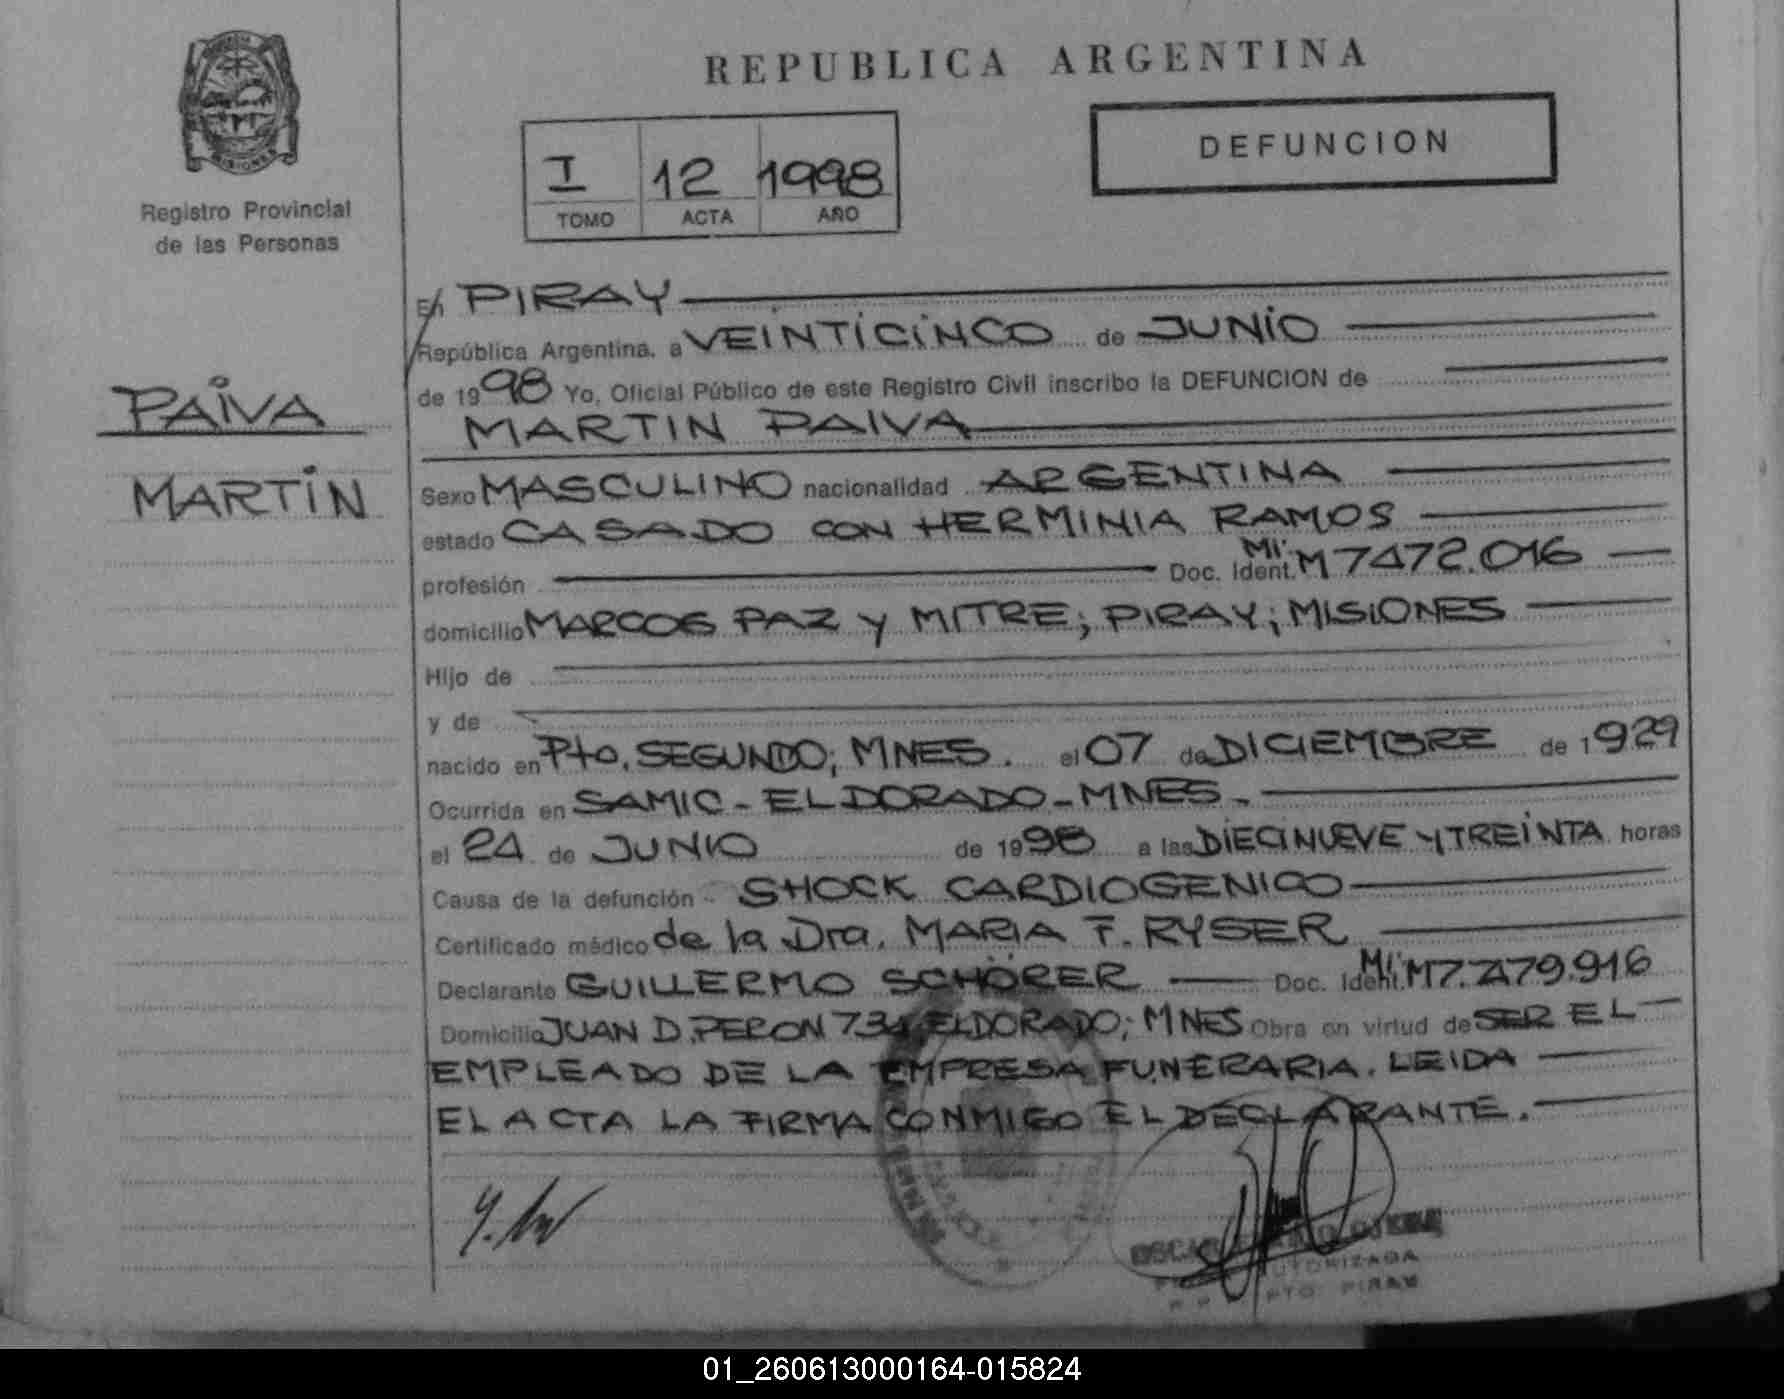 REPUBLICA ARGENTINA
DEFUNCION
I 12 1998
TOMO ACTA AÑO
MISIONES
Registro Provincial
de las Personas
PAIVA
MARTIN
En PIRAY
República Argentina, a VEINTICINCO de JUNIO
de 1998 Yo, Oficial Público de este Registro Civil inscribo la DEFUNCION de
MARTIN PAIVA
Sexo MASCULINO nacionalidad ARGENTINA
estado CASADO CON HERMINIA RAMOS
profesión Doc. Ident. MI: M 7472.016
domicilio MARCOS PAZ Y MITRE; PIRAY; MISIONES
Hijo de
y de
nacido en Pto. SEGUNDO; MNES. el 07 de DICIEMBRE de 1929
Ocurrida en SAMIC - ELDORADO - MNES -
el 24 de JUNIO de 1998 a las DIECINUEVE Y TREINTA horas
Causa de la defunción SHOCK CARDIOGENICO
Certificado médico de la Dra. MARIA F. RYSER
Declarante GUILLERMO SCHÖRER Doc. Ident. MI: M7.479.916
Domicilio JUAN D. PERON 734 ELDORADO; MNES Obra en virtud de SER EL
EMPLEADO DE LA EMPRESA FUNERARIA. LEIDA
EL ACTA LA FIRMA CONMIGO EL DECLARANTE.
OSCAR
AUTORIZADA
PTO. PIRAY
01_260613000164-015824